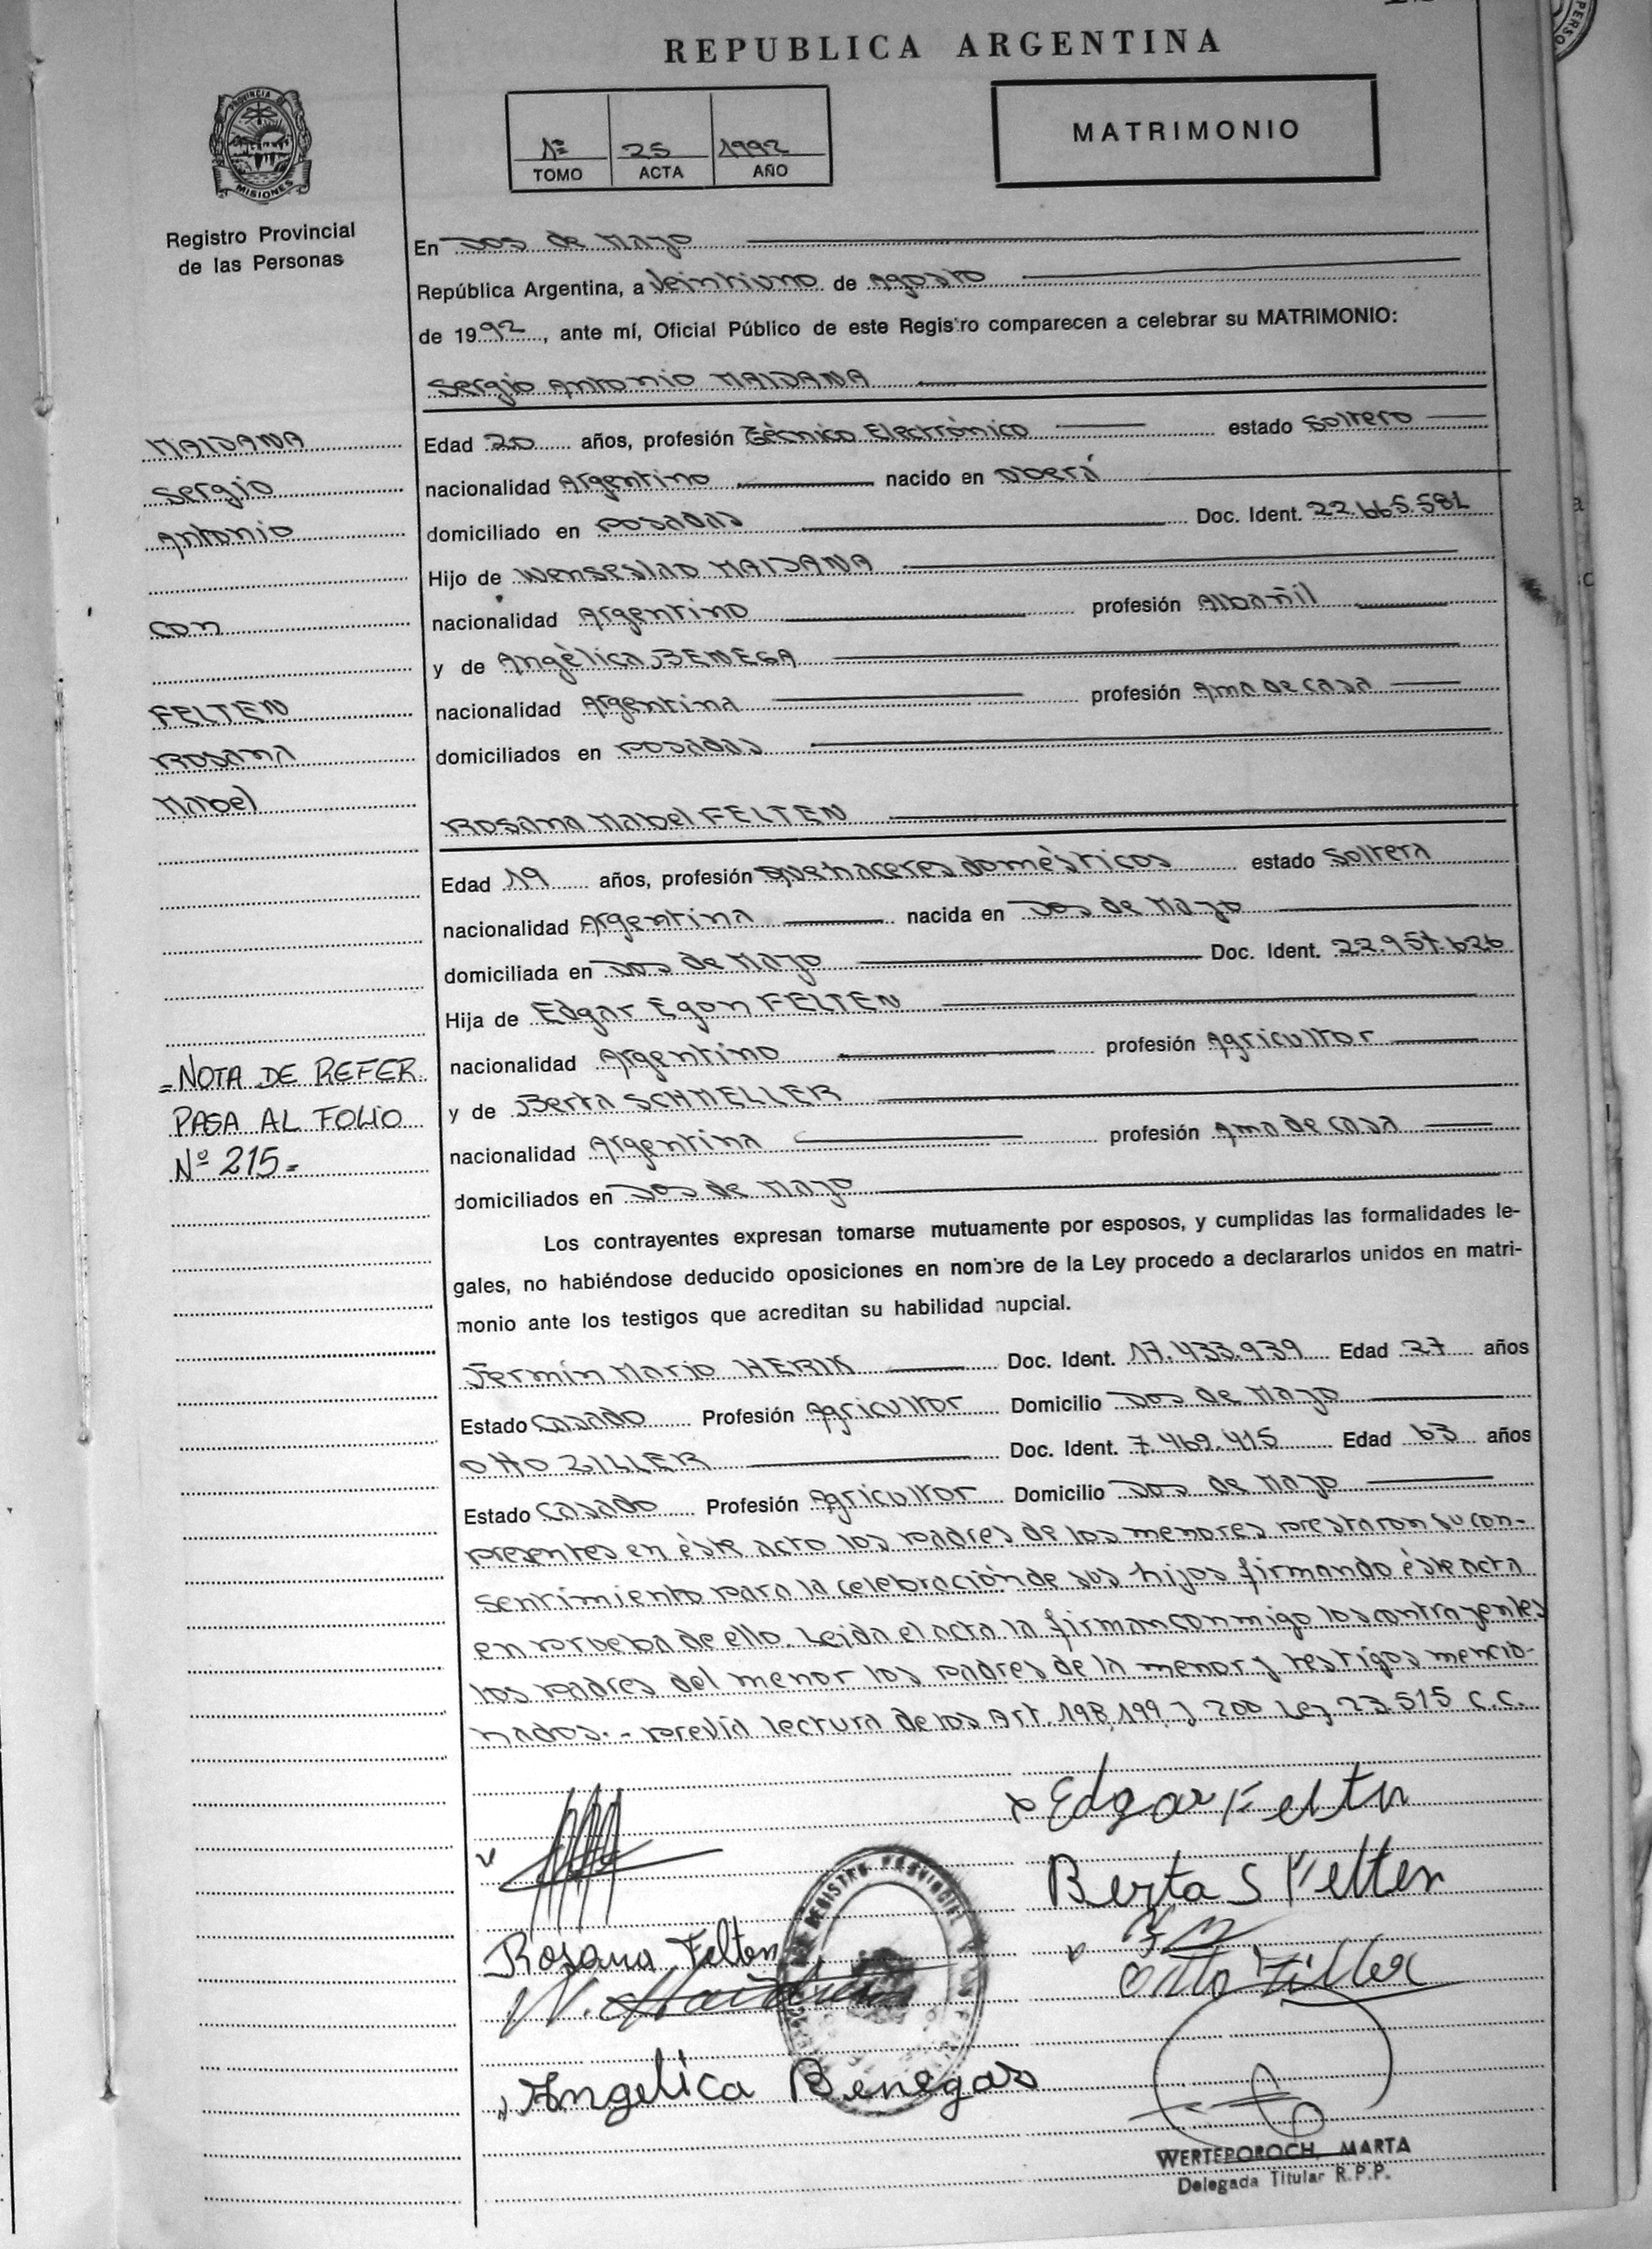 REPUBLICA ARGENTINA
PROVINCIA DE
MISIONES
Registro Provincial
de las Personas
1º 25 1992
TOMO ACTA AÑO
MATRIMONIO
En Dos de Mayo
República Argentina, a Veintiuno de Agosto
de 1992, ante mí, Oficial Público de este Registro comparecen a celebrar su MATRIMONIO:
Sergio Antonio MAIDANA
MAIDANA
Sergio
Antonio
con
FELTEN
Rosana
Mabel
Edad 20 años, profesión Técnico Electrónico estado Soltero
nacionalidad Argentino nacido en Oberá
domiciliado en Posadas Doc. Ident. 22.665.581
Hijo de Wenseslao MAIDANA
nacionalidad Argentino profesión Albañil
y de Angèlica BENEGA
nacionalidad Argentina profesión Ama de casa
domiciliados en Posadas
Rosana Mabel FELTEN
Edad 19 años, profesión quehaceres domèsticos estado Soltera
nacionalidad Argentina nacida en Dos de Mayo
domiciliada en Dos de Mayo Doc. Ident. 22.957.626
Hija de Edgar Egon FELTEN
nacionalidad Argentino profesión Agricultor
y de Berta SCHMELLER
nacionalidad Argentina profesión Ama de casa
domiciliados en Dos de Mayo
=NOTA DE REFER
PASA AL FOLIO
Nº 215=
Los contrayentes expresan tomarse mutuamente por esposos, y cumplidas las formalidades le-
gales, no habiéndose deducido oposiciones en nombre de la Ley procedo a declararlos unidos en matri-
monio ante los testigos que acreditan su habilidad nupcial.
Fermín Mario HERIK Doc. Ident. 17.433.939 Edad 27 años
Estado Casado Profesión Agricultor Domicilio Dos de Mayo
Otto ZILLER Doc. Ident. 7.469.415 Edad 63 años
Estado Casado Profesión Agricultor Domicilio Dos de Mayo
presentes en èste acto los padres de los menores prestaron su con-
sentimiento para la celebración de sus hijos firmando èste acta
en prueba de ello. Leida el acta la firman conmigo los contrayentes
los padres del menor los padres de la menor y testigos mencio-
nados.- previa lectura de los Art. 198, 199, y 200 Ley 23.515 C.C.
Edgar Felten
Berta S Felten
Rosana Felten
Otto Ziller
Angelica Benegas
REGISTRO PROVINCIAL
WERTEPOROCH, MARTA
Delegada Titular R.P.P.